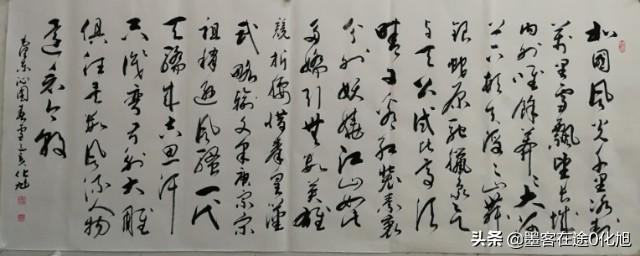 北国风光千里冰封
万里雪飘望长城
内外惟余莽〻大河
上下顿失滔〻山舞
银蛇原驰蜡象欲
与天公试比高须
晴日看红装素裹
分外妖娆江山如此
多娇引无数英雄
竞折腰惜秦皇汉
武略输文采唐宗宋
祖稍逊风骚一代
天骄成吉思汗
只识弯弓射大雕
俱往矣数风流人物
还看今朝
沁园春雪 化旭
头条 @墨客在途0化旭